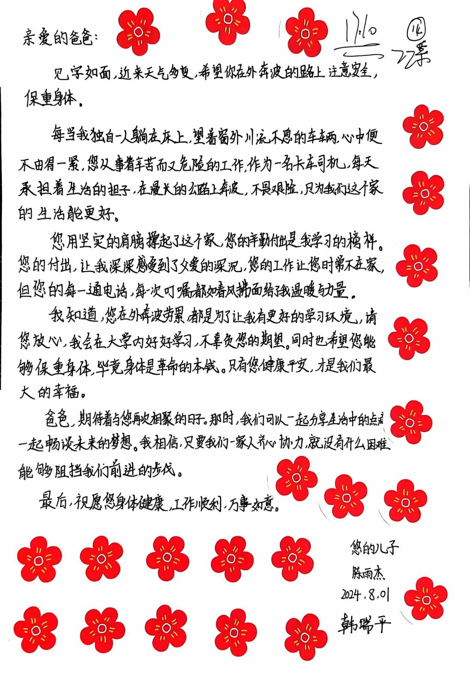 亲爱的爸爸:
22票
见字如面,近来天气多变,希望你在外奔波的路上注意安全,
保重身体。
每当我独自一人躺在床上,望着窗外川流不息的车辆,心中便
不由有一紧,您从事着辛苦而又危险的工作,作为一名卡车司机,每天
承担着生活的担子,在漫长的公路上奔波,不畏艰险,只为我们这个家
的生活能更好。
您用坚实的肩膀撑起了这个家,您的辛勤付出是我学习的榜样。
您的付出,让我深深感受到了父爱的深沉,您的工作让您时常不在家,
但您的每一通电话,每次叮嘱都如春风拂面给了我温暖与力量。
我知道,您在外奔波劳累都是为了让我有更好的学习环境,请
您放心,我会在大学内好好学习,不辜负您的期望。同时也希望您能
够保重身体,毕竟身体是革命的本钱。只有您健康平安,才是我们最
大的幸福。
爸爸,期待着与您再次相聚的日子。那时,我们可以一起分享生活中的点点
一起畅谈未来的梦想。我相信,只要我们一家人齐心协力,就没有什么困难
能够阻挡我们前进的步伐。
最后,祝愿您身体健康,工作顺利,万事如意。
您的儿子
陈雨杰
2024.8.01
韩瑞平